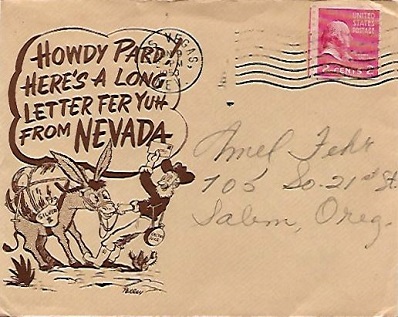 HOWDY PARD!
HERE'S A LONG
LETTER FER YUH
FROM NEVADA
VEGAS,
UNITED
STATES
POSTAGE
2 CENTS 2
Amel Fehr
705 So. 21st St.
Salem, Oreg.